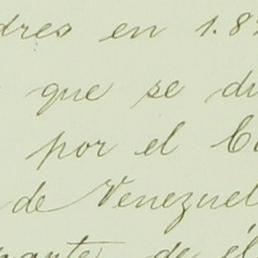 dres en 1.8
que se d
por el C
de Venezuel
parte de él